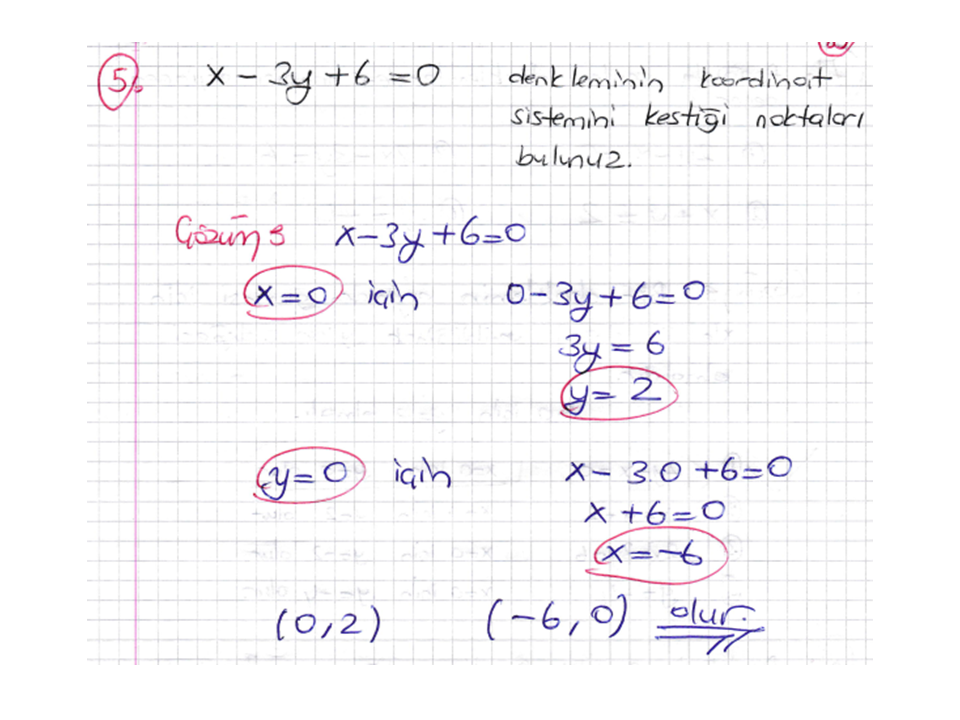 5. x - 3y + 6 = 0 denkleminin koordinat
sistemini kestiği noktaları
bulunuz.
Çözüm: x - 3y + 6 = 0
x = 0 için 0 - 3y + 6 = 0
3y = 6
y = 2
y = 0 için x - 3.0 + 6 = 0
x + 6 = 0
x = -6
(0,2) (-6,0) olur.